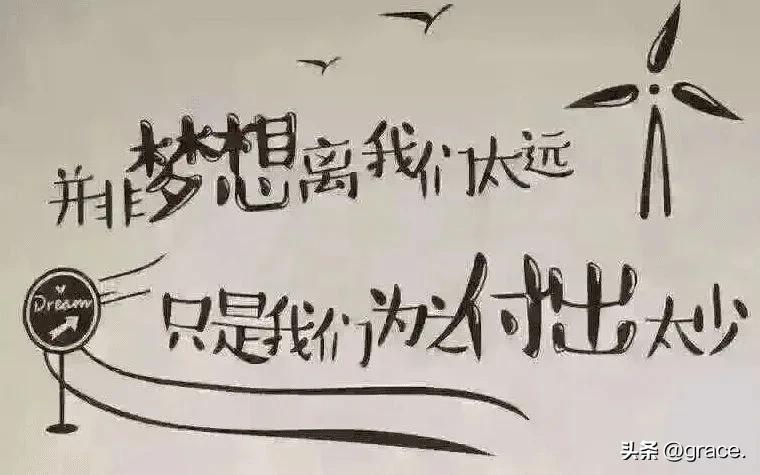 并非梦想离我们太远
Dream
只是我们为之付出太少
头条 @grace.